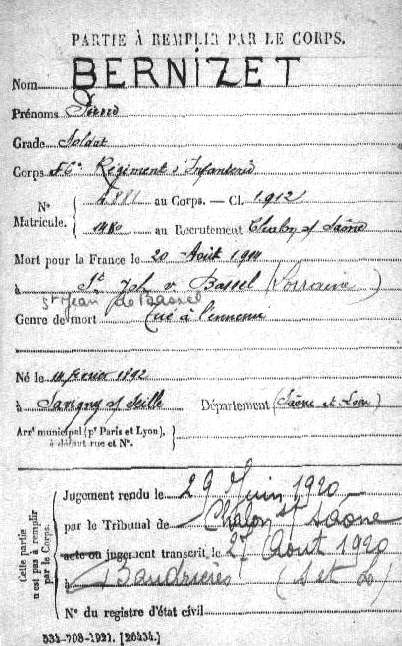 PARTIE À REMPLIR PAR LE CORPS.
Nom BERNIZET
Prénoms Pierre
Grade Soldat
Corps 56e Régiment d'Infanterie
N° Matricule. { 4881 au Corps. — Cl. 1912
1480 au Recrutement Chalon s/ Saône
Mort pour la France le 20 Août 1914
à St Joh. v. Bassel (Lorraine)
St Jean de Bassel
Genre de mort Tué à l'ennemi
Né le 14 février 1892
à Savigny s/ Seille Département (Saône et Loire)
Arrt municipal (pr Paris et Lyon),
à défaut rue et N°.
Cette partie n'est pas à remplir par le Corps.
Jugement rendu le 29 Juin 1920
par le Tribunal de Chalon s/ Saône
acte ou jugement transcrit le 27 Août 1920
à Baudrières (S et L)
N° du registre d'état civil
534-708-1921. [26434.]